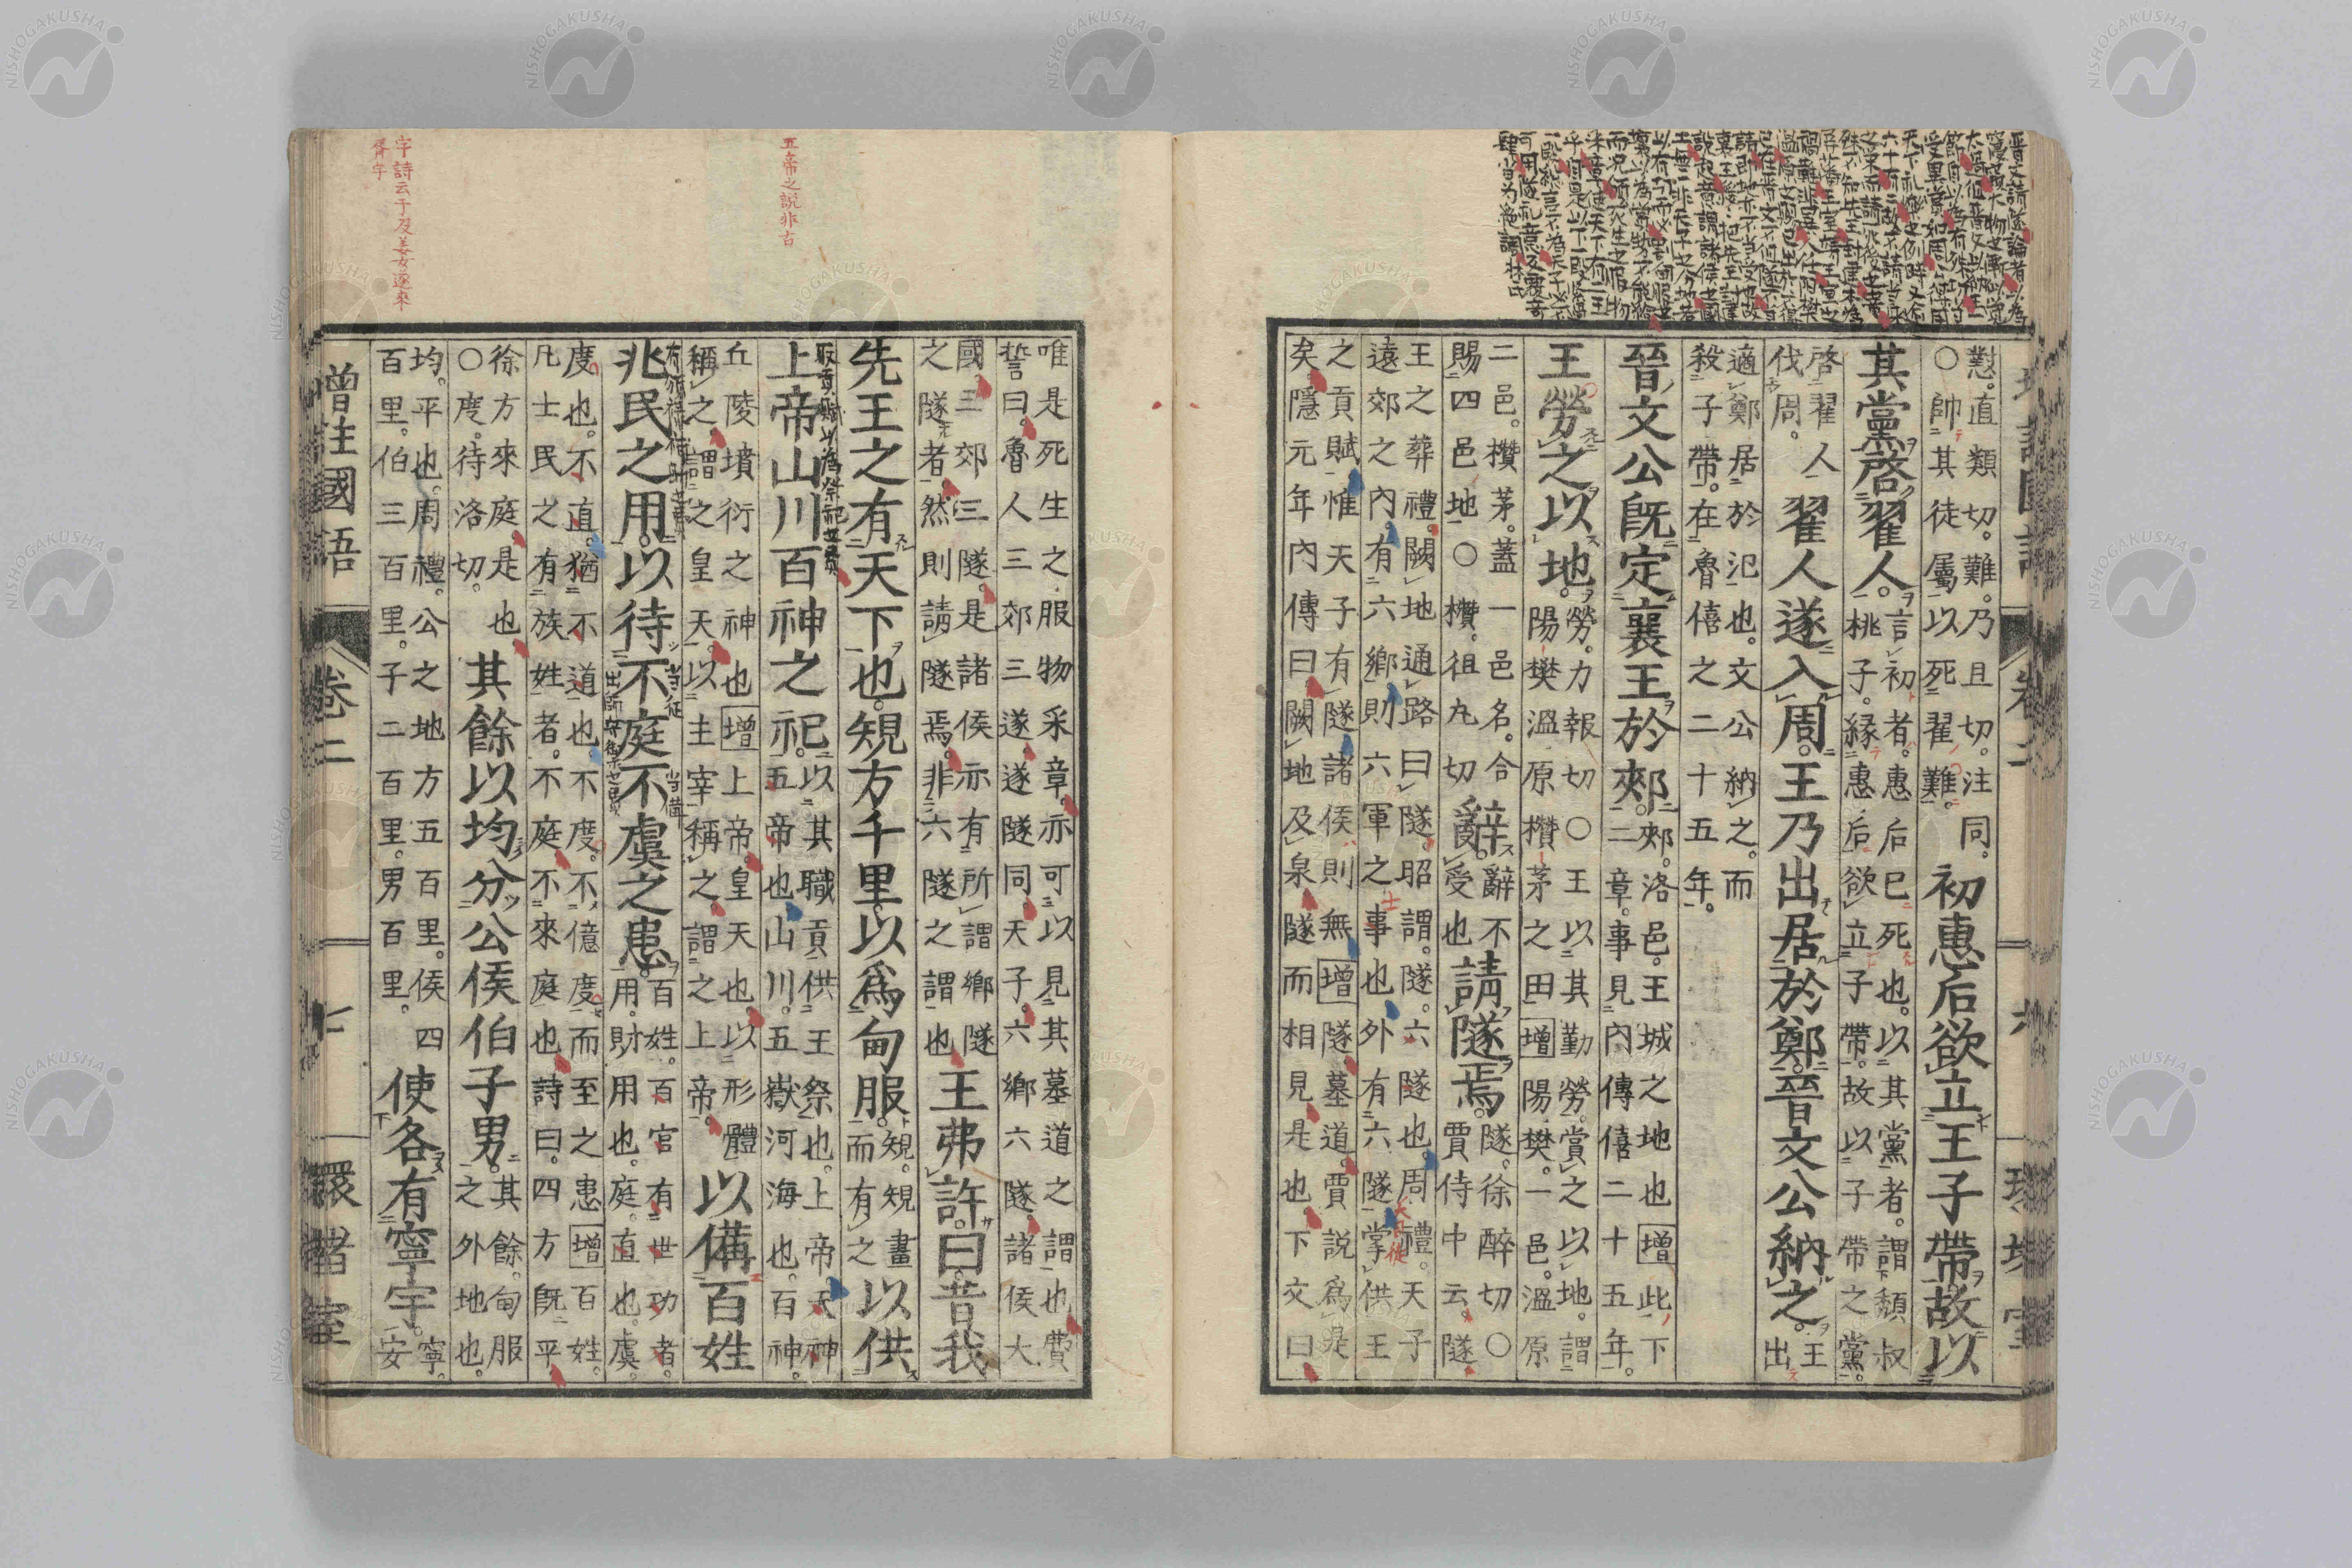 懟。直類切。難。乃且切。注同。
○帥其徒屬以死翟難。
初惠后欲立王子帶故以
其黨啓翟人。
言初者。惠后已死也。以其黨者。謂頹叔
桃子。緣惠后欲立子帶。故以子帶之黨。
啓翟人
伐周。
翟人遂入周。王乃出居於鄭。晉文公納之。
王
出
適鄭居於氾也。文公納之。而
殺子帶。在魯僖之二十五年。
晉文公既定襄王於郟。
郟。洛邑。王城之地也增此下
二章。事見內傳僖二十五年。
王勞之以地。
勞。力報切○王以其勤勞。賞之以地。謂
陽樊溫原攢茅之田增陽樊。一邑。溫原
二邑。攢茅。蓋一邑名。合
賜四邑地○攢。徂丸切
辭。
辭不
受也
請隧焉。
隧。徐醉切○
賈侍中云。隧
王之葬禮。闕地通路曰隧。昭謂。隧。六隧也。周禮。天子
遠郊之內。有六鄉。則六軍之事也。外有六隧。掌供王
之貢賦。惟天子有隧。諸侯則無增隧墓道。賈說爲是
矣。隱元年內傳曰。闕地及泉。隧而相見。是也。下文曰
五帝之說非古
唯是死生之服物采章。亦可以見其墓道之謂也費
誓曰。魯人三郊三遂。遂隧同。天子。六鄉六隧。諸侯大
國三郊三隧。是諸侯亦有所謂鄉隧
之隧者。然則請隧焉。非六隧之謂也
王弗許。曰。昔我
先王之有天下也。規方千里。以爲甸服。
規。規畫
而有之
以供
上帝山川百神之祀。
以其職貢供王祭也。上帝。天神
五帝也山川。五嶽河海也。百神。
丘陵墳衍之神也增上帝。皇天也。以形體
稱之。謂之皇天。以主宰稱之。謂之上帝。
以備百姓
兆民之用。以待不庭不虞之患。
百姓。百官有世功者。
用。財用也。庭。直也。虞。
度也。不直。猶不道也。不度。不億度而至之患增百姓。
凡士民之有族姓者。不庭。不來庭也。詩曰。四方既平
徐方來庭。是也。
○度。待洛切。
其餘以均分公侯伯子男。
其餘。甸服
之外地也。
均。平也。周禮。公之地方五百里。侯四
百里。伯三百里。子二百里。男百里。
使各有寧宇。
寧。
安
增註國語
卷二
七
環堵室